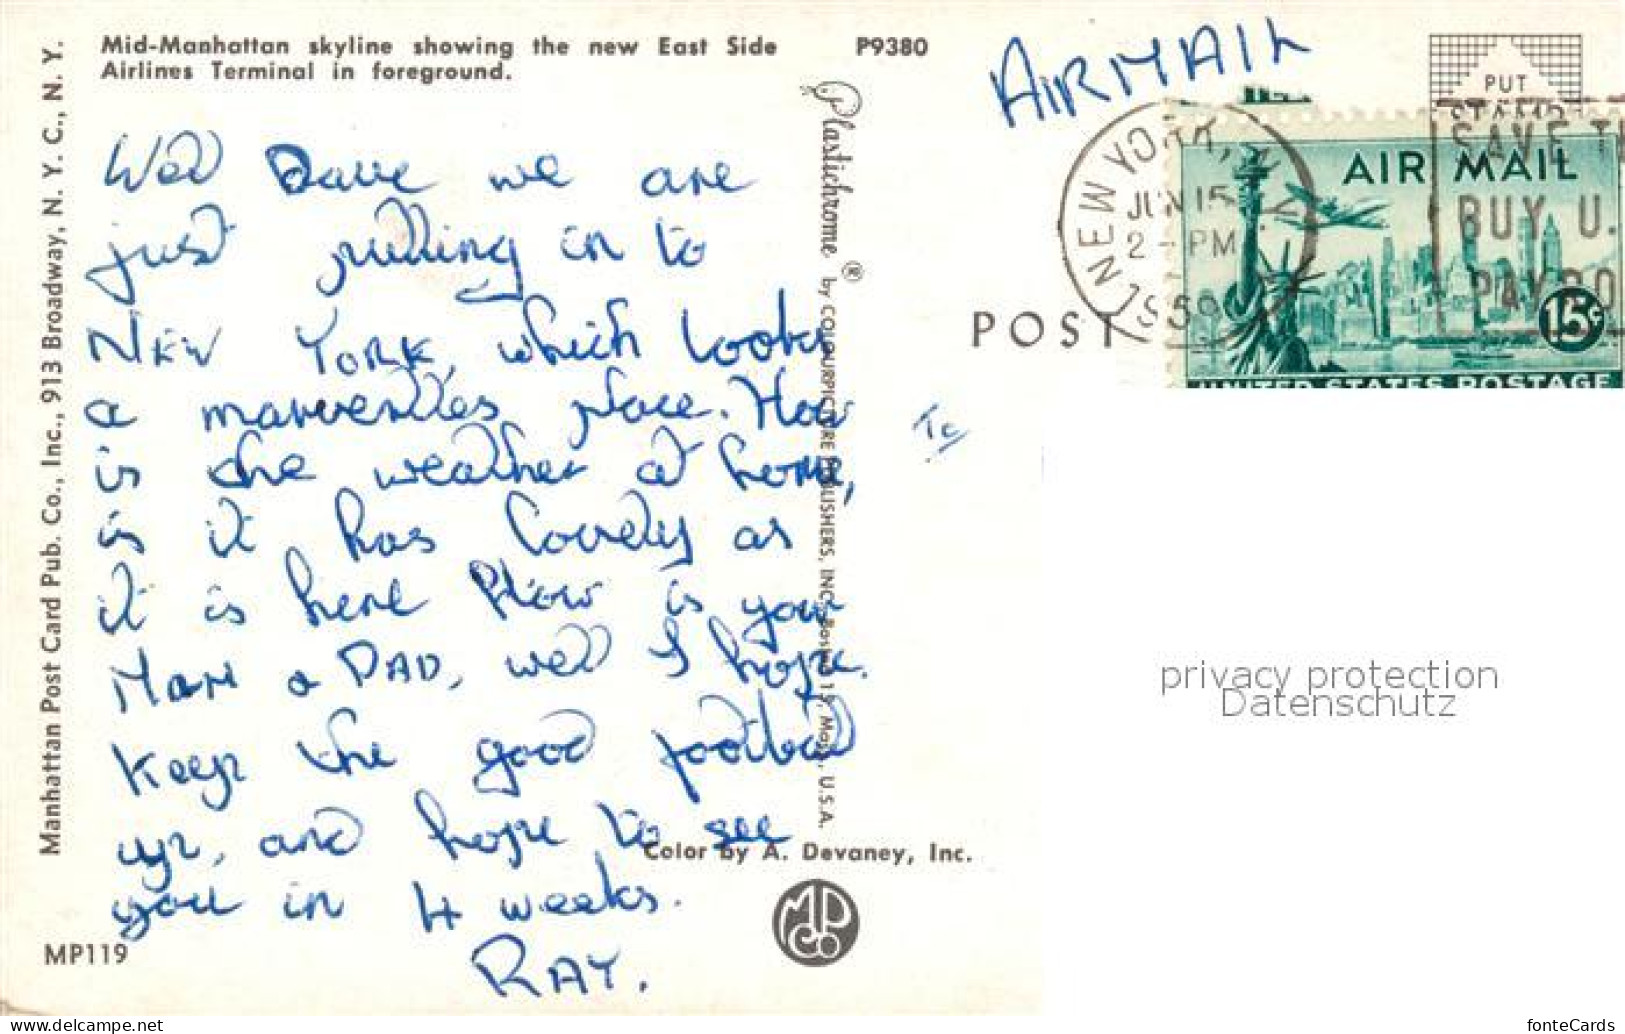 Mid-Manhattan skyline showing the new East Side
Airlines Terminal in foreground.
P9380
AIRMAIL
PUT
STAMP
NEW YORK, N.Y.
JUN 15
2 - PM
1959
SAVE T
BUY U.
PAY RO
AIR MAIL
15¢
UNITED STATES POSTAGE
POST
Well Dave we are
just pulling in to
NEW YORK, which looks
a marverlles place. How
is the weather at home,
is it has lovely as
it is here How is your
Mam a DAD, well I hope.
Keep the good football
up, and hope to see
you in 4 weeks.
RAY.
To
Manhattan Post Card Pub. Co., Inc., 913 Broadway, N. Y. C., N. Y.
Plastichrome ® by COLOURPICTURE PUBLISHERS, INC., Boston 15, Mass., U.S.A.
Color by A. Devaney, Inc.
MPCo
MP119
privacy protection
Datenschutz
www.delcampe.net
fonteCards